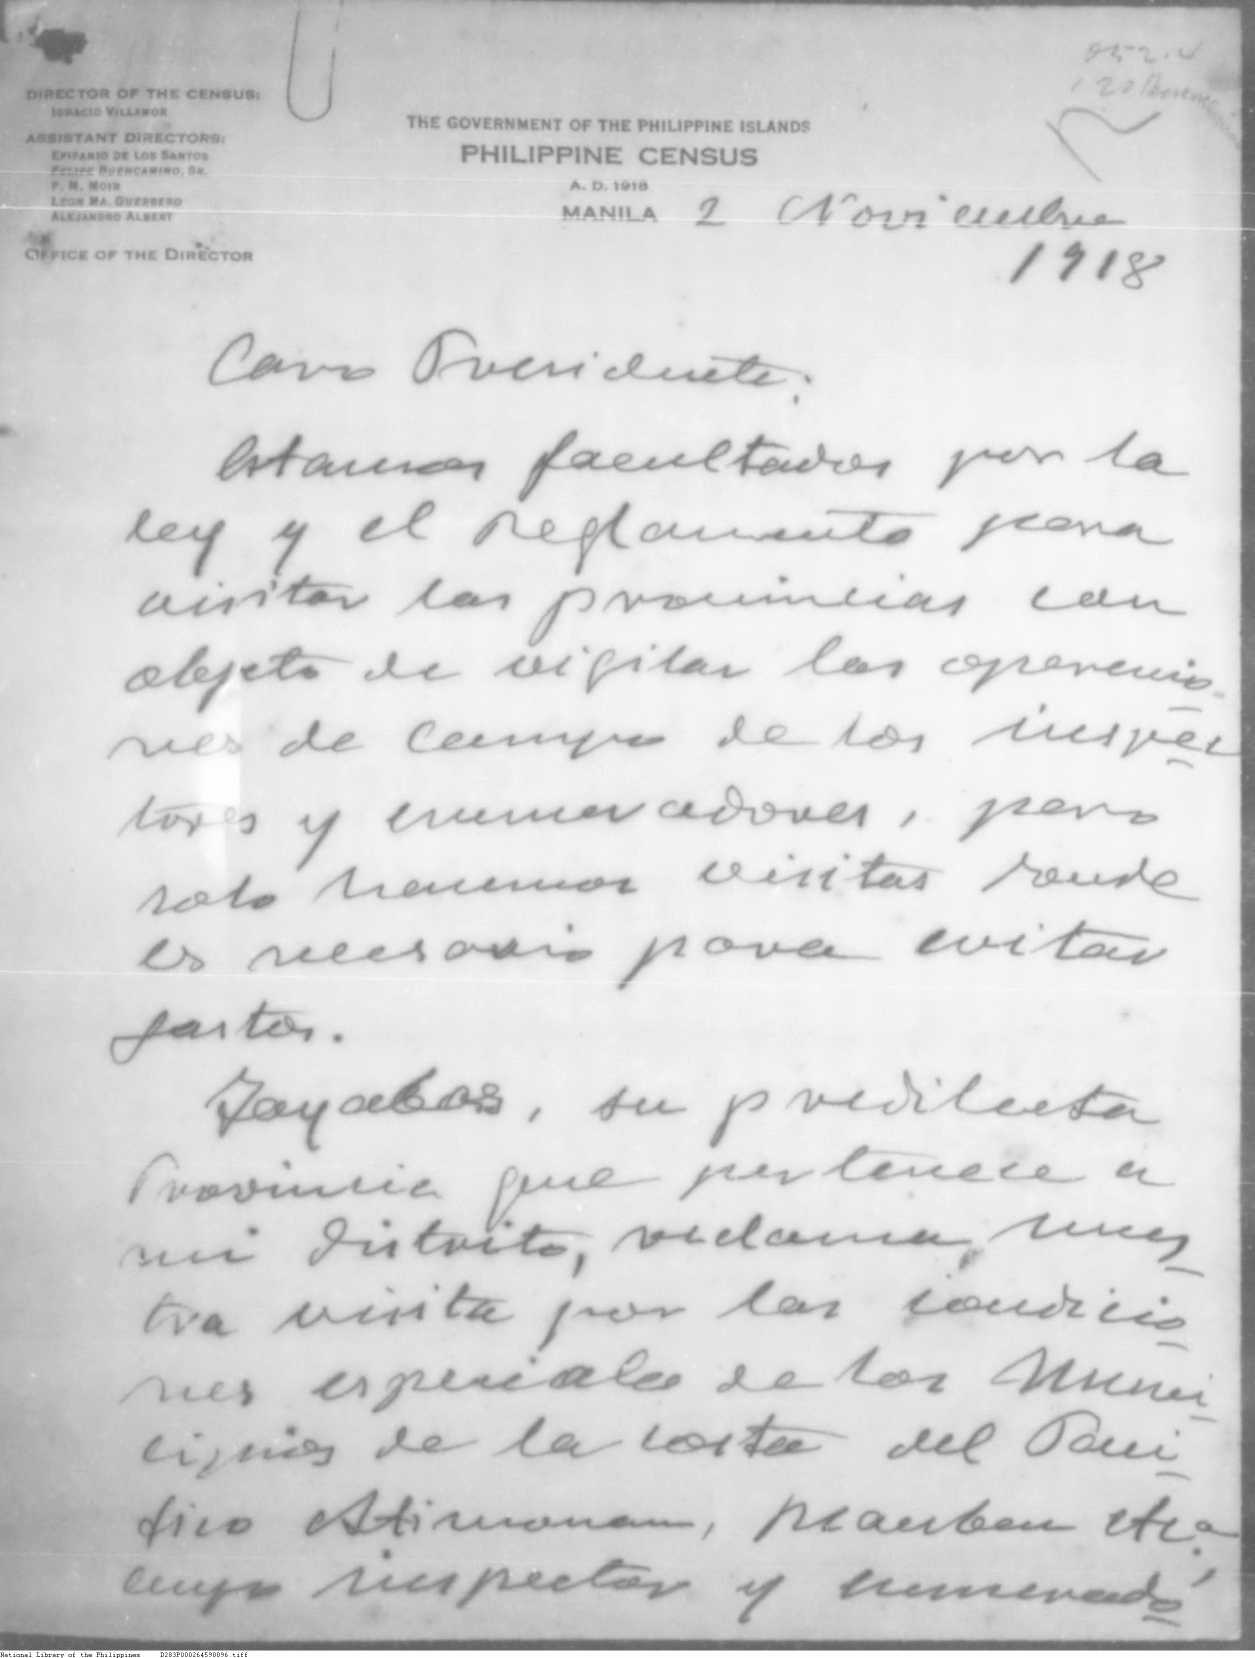 DIRECTOR OF THE CENSUS:
IGNACIO VILLAMOR
ASSISTANT DIRECTORS:
EPIFANIO DE LOS SANTOS
FELIPE BUENCAMINO, SR.
P. M. MOIR
LEON MA. GUERRERO
ALEJANDRO ALBERT
OFFICE OF THE DIRECTOR
THE GOVERNMENT OF THE PHILIPPINE ISLANDS
PHILIPPINE CENSUS
A. D. 1918
MANILA 2 Noviembre
1918
Caro Presidente:
Estamos facultados por la
ley y el reglamento para
visitar las provincias con
objeto de vigilar las operacio-
nes de campo de los inspec-
tores y enumeradores, pero
solo hacemos visitas donde
es necesario para evitar
gastos.
Tayabas, su predilecta
Provincia que pertenece a
mi distrito, reclama nues-
tra visita por las condicio-
nes especiales de los Muni-
cipios de la costa del Paci-
fico Atimonan, Mauban etc.a,
cuyo inspector y enumerado-
National Library of the Philippines D283P000264590896.tiff